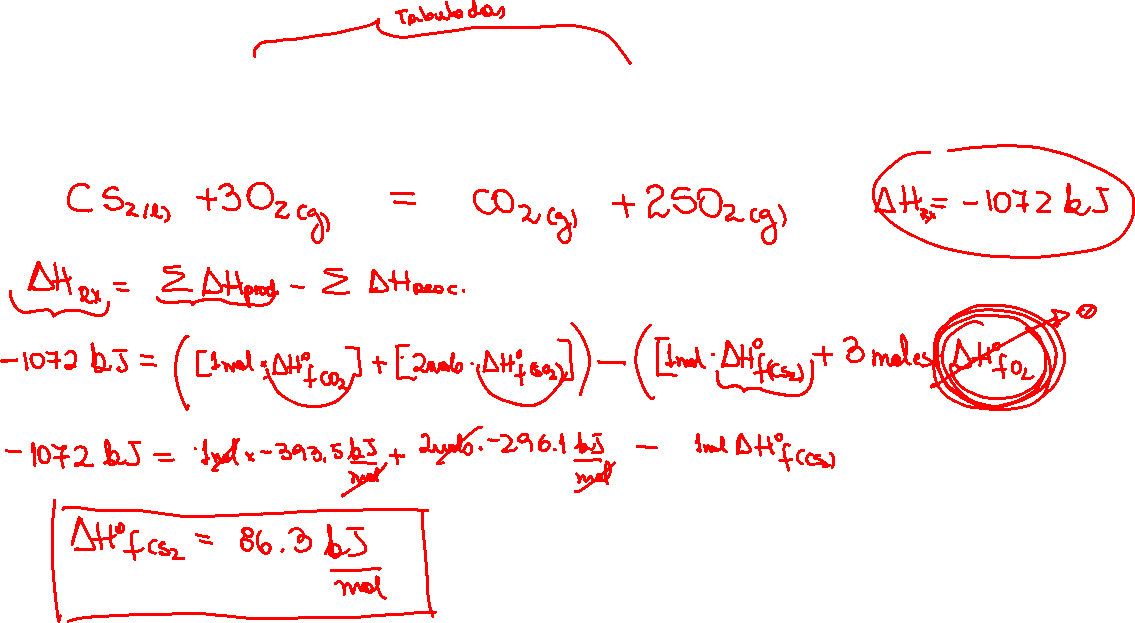 Tabulados
CS₂(l) + 3O₂(g) = CO₂(g) + 2SO₂(g) ΔH_Rx = -1072 kJ
ΔH_Rx = Σ ΔH_prod - Σ ΔH_reac.
-1072 kJ = ([1mol · ΔH°f CO₂] + [2mols · ΔH°f(SO₂)]) - ([1mol · ΔH°f(CS₂) + 3 moles ΔH°f O₂ 0
-1072 kJ = 1mol × -393.5 kJ/mol + 2mols · -296.1 kJ/mol - 1mol ΔH°f(CS₂)
ΔH°f CS₂ = 86.3 kJ/mol